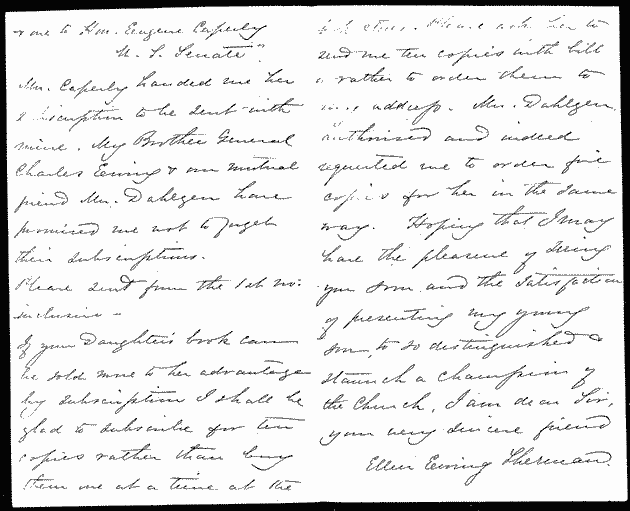 & one to Hon. Eugene Casserly
U. S. Senate".
Mrs. Casserly handed me her
subscription to be sent with
mine. My Brother General
Charles Ewing & our mutual
friend Mrs. Dahlgren have
promised me not to forget
their subscriptions.
Please send from the 1st no:
inclusive –
If your Daughter's book can
be sold more to her advantage
by subscription I shall be
glad to subscribe for ten
copies rather than buy
them one at a time at the
book store. Please ask her to
send me ten copies with bill
or rather to order them to
my address. Mrs. Dahlgren
authorised and indeed
requested me to order five
copies for her in the same
way. Hoping that I may
have the pleasure of seeing
you soon and the satisfaction
of presenting my young
son, to so distinguished &
staunch a champion of
the Church, I am dear Sir,
your very sincere friend
Ellen Ewing Sherman.